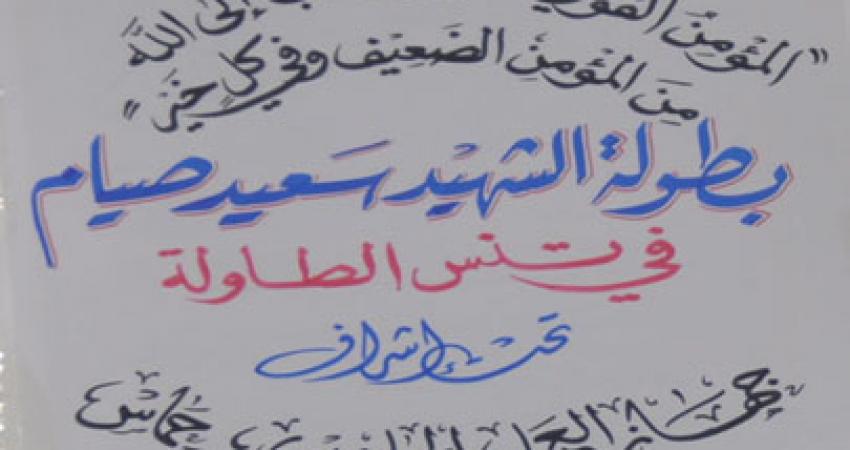 "المؤمن القوي إلى الله
من المؤمن الضعيف وفي كلٍ خير"
بطولة الشهيد سعيد صيام
في تنس الطاولة
تحت إشراف
جهاز العمل حماس